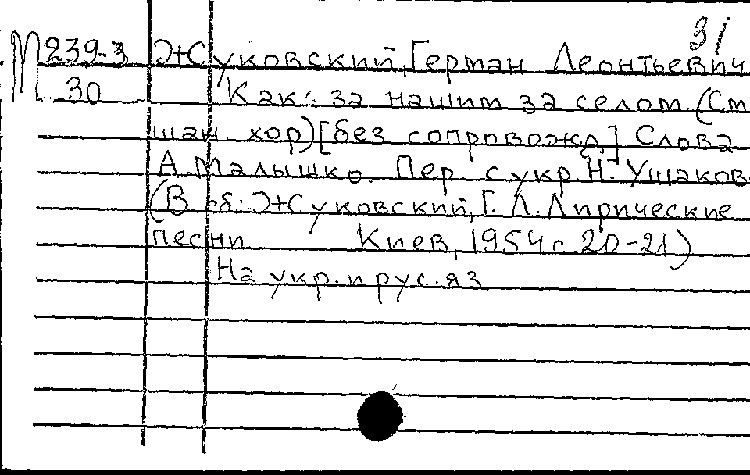 31
М 239-3 Жуковский, Герман Леонтьевич
30 Как: за нашим за селом (См
шан. хор) [без сопровожд.] Слова
А. Малышко. Пер. с укр. Н. Ушаков
(В сб.: Жуковский, Г. Л. Лирические
песни Киев, 1954 с. 20-21)
На укр. и рус. яз